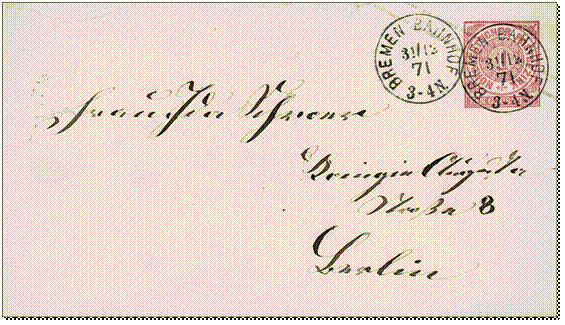 BREMEN BAHNHOF
31/12
71
3-4N.
BREMEN BAHNHOF
31/12
71
3-4N.
Frau Ida Schroer
Königin Augusta
Straße 8
Berlin